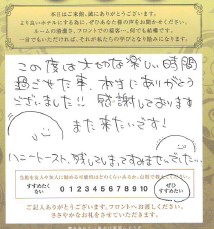 本日はご来館、誠にありがとうございます。
より良いホテルにする為に、ぜひあなた様の声をお聞かせください。
ルームの清潔さ、フロントでの接客…、何でも結構です。
一言でもいただければ、それが私たちの学びとなり励みになります。
この度は大切な楽しい時間
過ごせた事、本当にありがとう
ございました!! 感謝しております
また来たいです!
ハニートースト、残してしまってすみませんでした…
当館を友人や友人に勧める可能性はどのくらいあるか、○印で教えてください。
すすめたくない
0 1 2 3 4 5 6 7 8 9 10
ぜひすすめたい
ご記入ありがとうございます。フロントへお渡しください。
ささやかなお礼をさせていただきます。